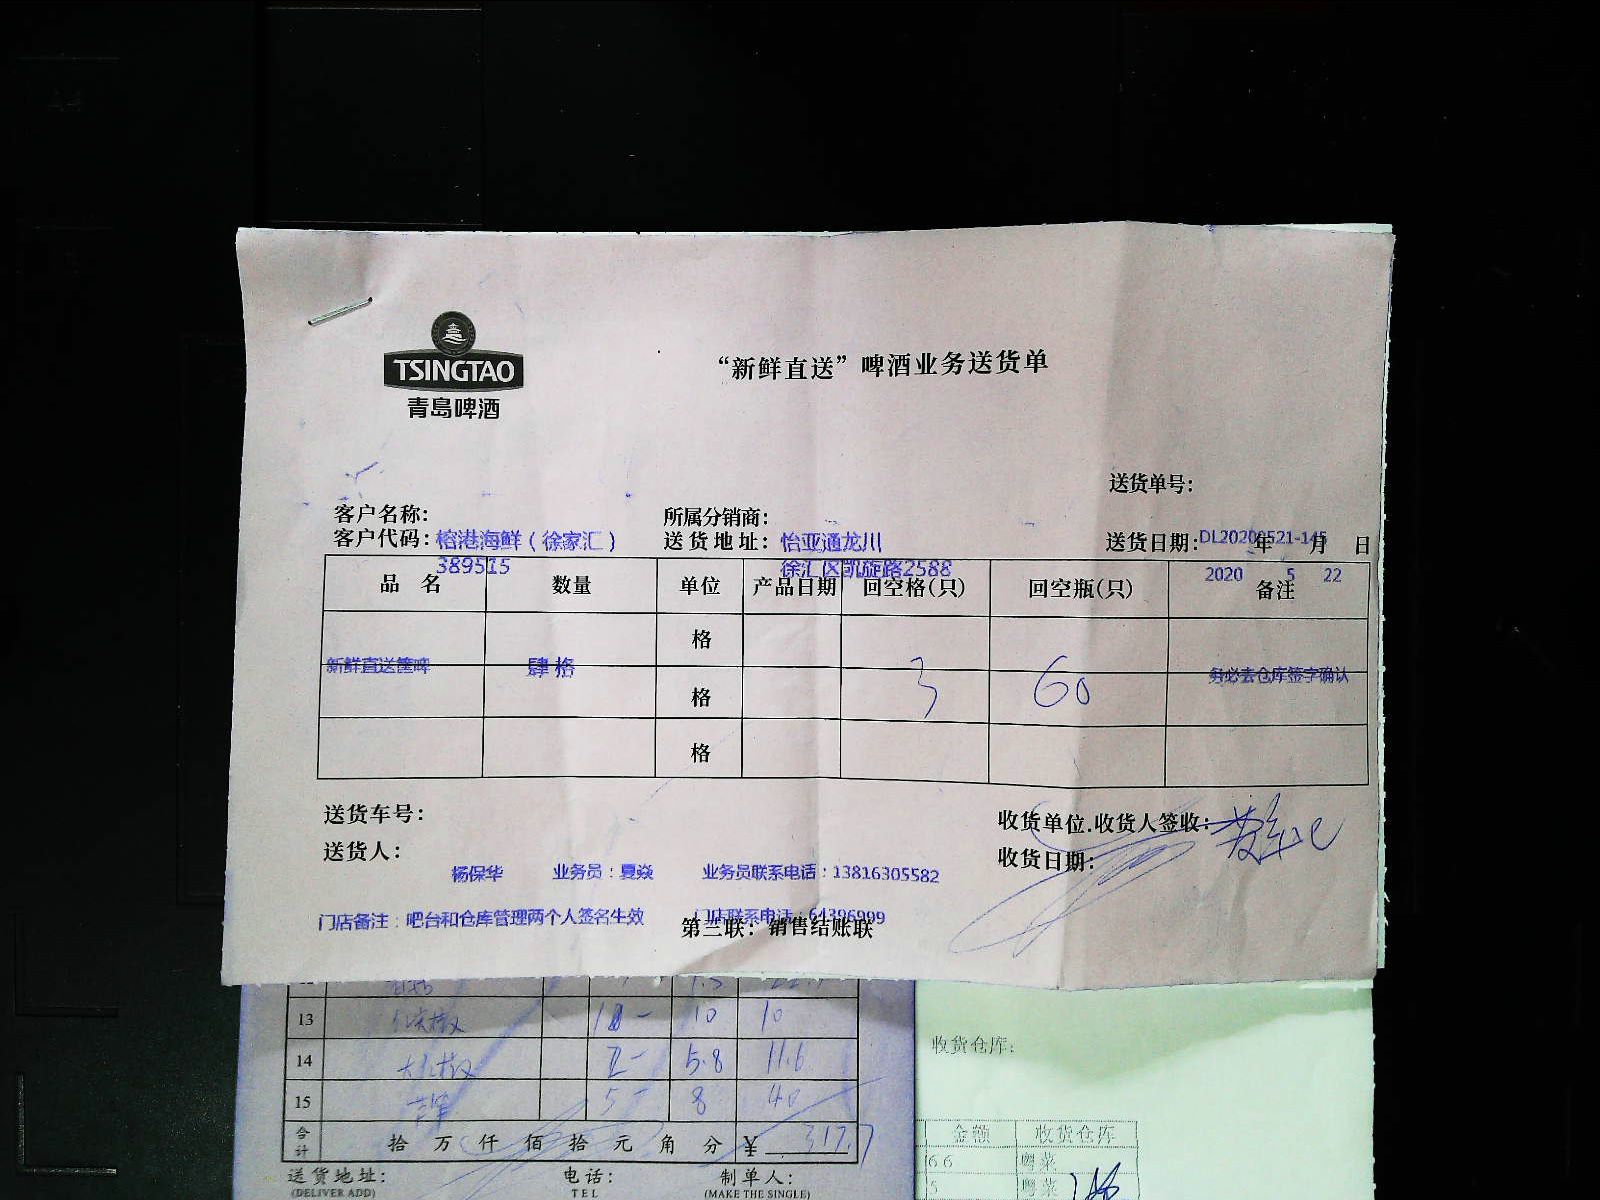 TSINGTAO
青島啤酒
“新鲜直送”啤酒业务送货单
送货单号:
客户名称:
所属分销商:
客户代码: 榕港海鲜(徐家汇)
送货地址: 怡亚通龙川
送货日期: DL20200521-145 年 月 日
389515
徐汇区凯旋路2588
2020 5 22
品 名 数量 单位 产品日期 回空格(只) 回空瓶(只) 备注
格
新鲜直送筐啤 肆格 务必去仓库签字确认
格 3 60
格
送货车号:
收货单位.收货人签收:
送货人:
收货日期:
杨保华 业务员:夏焱 业务员联系电话:13816305582
门店备注:吧台和仓库管理两个人签名生效 门店联系电话:64396999
第三联:销售结账联
13 10 10
14 5.8 11.6
15 5- 8 40
合计 拾 万 仟 佰 拾 元 角 分 ¥ 317.7
送货地址: 电话: 制单人:
(DELIVER ADD) TEL (MAKE THE SINGLE)
收货仓库:
金额 收货仓库
66 粤菜
5 粤菜